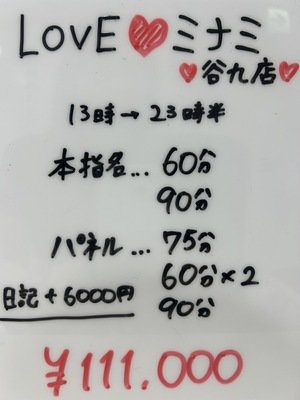 LOVE♥ミナミ
♥谷九店♥
13時→23時半
本指名... 60分
90分
パネル... 75分
60分×2
日記+6000円 90分
¥111.000